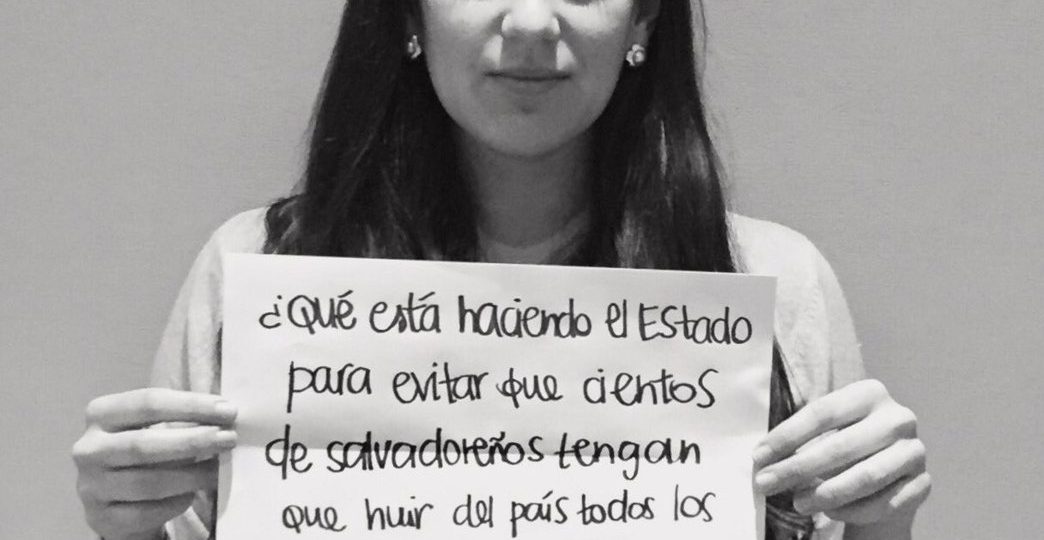 ¿Qué está haciendo el Estado
para evitar que cientos
de salvadoreños tengan
que huir del país todos los